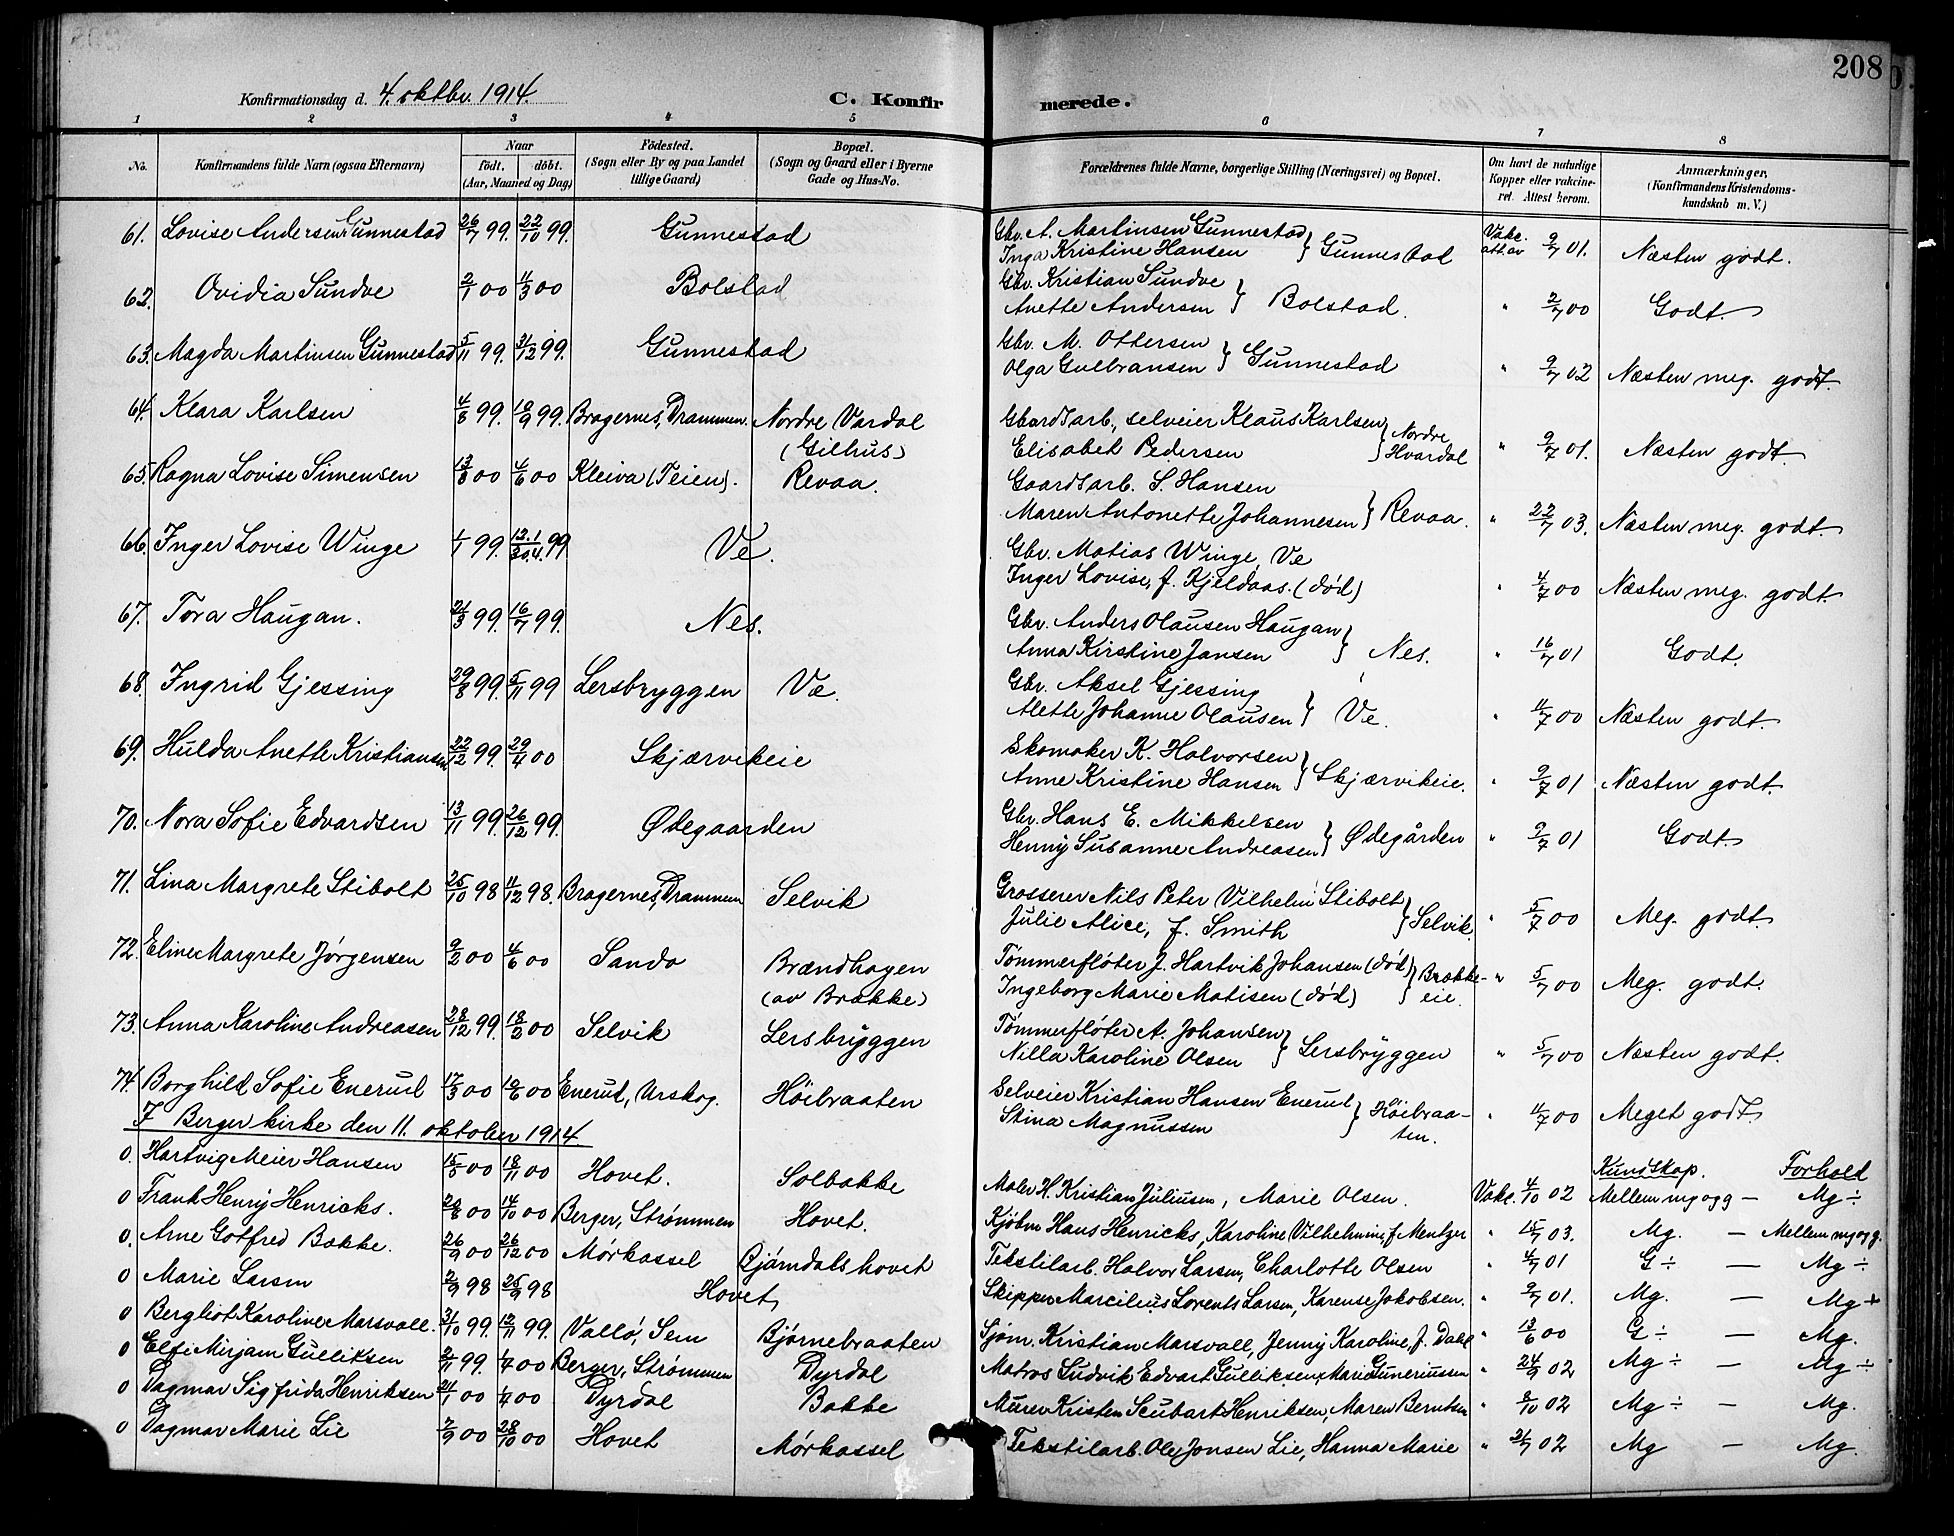 208
Konfirmationsdag d. 4. oktbr. 1914.
C. Konfir merede.
1 2 3 4 5 6 7 8
No. Konfirmandens fulde Navn (ogsaa Efternavn) Naar Födt. döbt. (Aar, Maaned og Dag) Födested. (Sogn eller By og paa Landet tillige Gaard) Bopæl. (Sogn og Gaard eller i Byerne Gade og Hus-No. Forældrenes fulde Navne, borgerlige Stilling (Næringsvei) og Bopæl. Om havt de naturlige Kopper eller vakcineret. Attest herom. Anmærkninger. (Konfirmandens Kristendomskundskab m. V.)
61. Lovise Andersen Gunnestad 26/7 99. 22/10 99. Gunnestad Gbr. A. Martinsen Gunnestad Inga Kristine Hansen } Gunnestad Vakc. att. av 9/7 01. Næsten godt.
62. Ovidia Sundve 2/1 00 4/3 00 Bolstad Gbr. Kristian Sundve Anette Andersen } Bolstad. " 2/7 00 Godt.
63. Magda Martinsen Gunnestad 5/11 99. 31/12 99. Gunnestad Gbr. M. Ottersen Olga Gulbransen } Gunnestad " 9/7 02 Næsten meg. godt.
64. Klara Karlsen 4/8 99. 10/9 99. Bragernes, Drammen. Nordre Vardal (Gilhus) Gaardsarb., selveier Klaus Karlsen Elisabet Pedersen } Nordre Hvardal " 9/7 01. Næsten godt.
65. Ragna Lovise Simensen 13/3 00 4/6 00 Kleiva (Teien). Revaa. Gaardsarb. S. Hansen Maren Antonette Johannesen } Revaa. " 22/7 03. Næsten meg. godt.
66. Inger Lovise Winge 1/1 99. 12.1/30.4. 99 Ve. Gbr. Matias Winge, Ve Inger Lovise, f. Kjeldaas. (død) " 4/7 00 Næsten meg. godt.
67. Tora Haugan. 21/3 99. 16/7 99. Nes. Gbr. Anders Olausen Haugan Anna Kirstine Jansen } Nes. " 16/7 01 Godt.
68. Ingrid Gjessing 29/8 99. 5/11 99 Lersbryggen Ve. Gbr. Aksel Gjessing Alette Johanne Olausen } Ve. " 11/7 00 Næsten godt.
69. Hulda Anette Kristiansen 22/12 99. 29/4 00 Skjærvikeie Skomaker K. Halvorsen Anne Kristine Hansen } Skjærvikeie. " 9/7 01 Næsten godt.
70. Nora Sofie Edvardsen 13/11 99. 26/12 99. Ødegaarden Gbr. Hans E. Mikkelsen Henny Susanne Andreasen } Ødegården " 9/7 01 Godt.
71. Lina Margrete Stibolt 25/10 98 4/12 98. Bragernes, Drammen Selvik Grosserer Nils Peter Vilhelm Stibolt Julie Alice, f. Smith } Selvik. " 5/7 00 Meg. godt.
72. Eline Margrete Jørgensen 9/2 00 4/6 00 Sando Brændhagen (av Brække) Tømmerfløter J. Hartvik Johansen (død) Ingeborg Marie Matisen (død) } Brækkeeie. " 5/7 00 Meg. godt.
73. Anna Karoline Andreasen 28/12 99. 18/2 00 Selvik Lersbryggen Tømmerfløter A. Johansen Nilla Karoline Olsen } Lersbryggen " 5/7 00 Næsten godt.
74. Borghild Sofie Enerud 17/3 00 10/6 00 Enerud, Urskog. Höibraaten Selveier Kristian Hansen Enerud Stina Magnussen } Höibraaten. " 11/7 00 Meget godt
I Berger kirke den 11. oktober 1914. Kundskap. Forhold
0. Hartvig Meier Hansen 15/5 00 18/11 00 Hovet. Solbakke Maler H. Kristian Juliusen, Marie Olsen. Vakc. 4/10 02 Mellem mg og g — Mg ÷
0 Frank Henry Henricks. 29/8 00 14/10 00 Berger, Strømmen Hovet. Kjøbm Hans Henricks, Karoline Vilhelmine, f. Mentzer " 15/7 03. Mg. — Mellem mg og g.
0. Arne Gotfred Bakke. 26/9 00 26/12 00 Mørkassel Bjørndalshovet Tekstilarb. Halvor Larsen, Charlotte Olsen " 4/7 01 G ÷ — Mg ÷
0 Marie Larsen 2/9 98 25/9 98 Hovet Skipper Marcilius Lorents Larsen, Karense Jakobsen. " 9/7 01. Mg. — Mg +
0 Bergliot Karoline Marsvall. 31/10 99. 12/11 99. Vallö, Sem Bjørnebraaten Sjøm. Kristian Marsvall, Jenny Karoline, f. Dahl " 13/6 00 G ÷ — Mg.
0 Elfi Mirjam Gulliksen 2/11 99. 1/7 00 Berger, Strømmen Dyrdal Matros Ludvik Edvart Gulliksen, Marie Guneriussen " 24/9 02 Mg ÷ — Mg ÷
0 Dagmar Sigfrida Henriksen 24/1 00 1/7 00 Dyrdal Bakke Murer Kristen Scubart Henriksen, Maren Berntsen " 8/10 02 Mg ÷ — Mg.
0 Dagmar Marie Lie 7/9 00 28/10 00 Hovet Mørkassel Tekstilarb. Ole Jonsen Lie, Hanna Marie " 21/7 02 Mg — Mg.